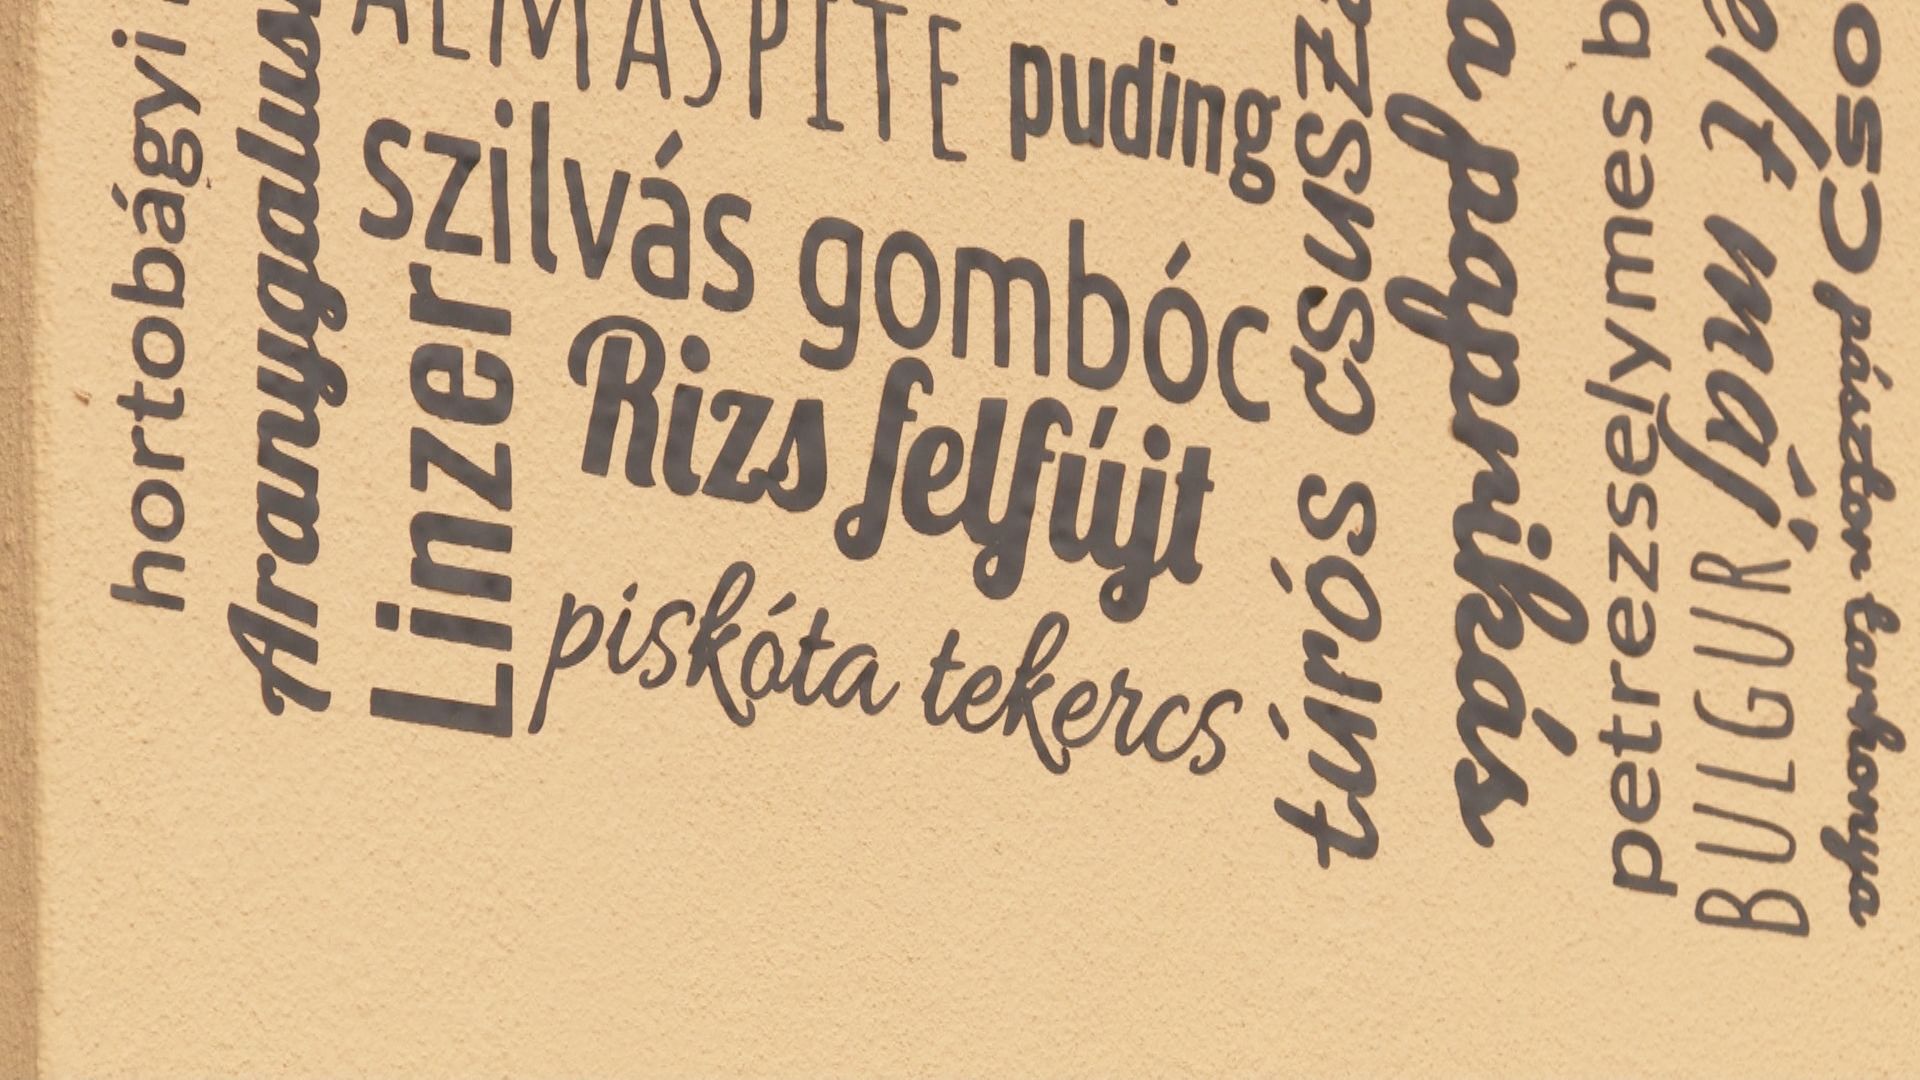 hortobágyi
Aranygalus
Linzer
ALMÁSPITE
puding
szilvás gombóc
Rizs felfújt
piskóta tekercs
túrós csusza
a paprikás
petrezselymes b
elt máj
BULGUR
pásztor tarhonya